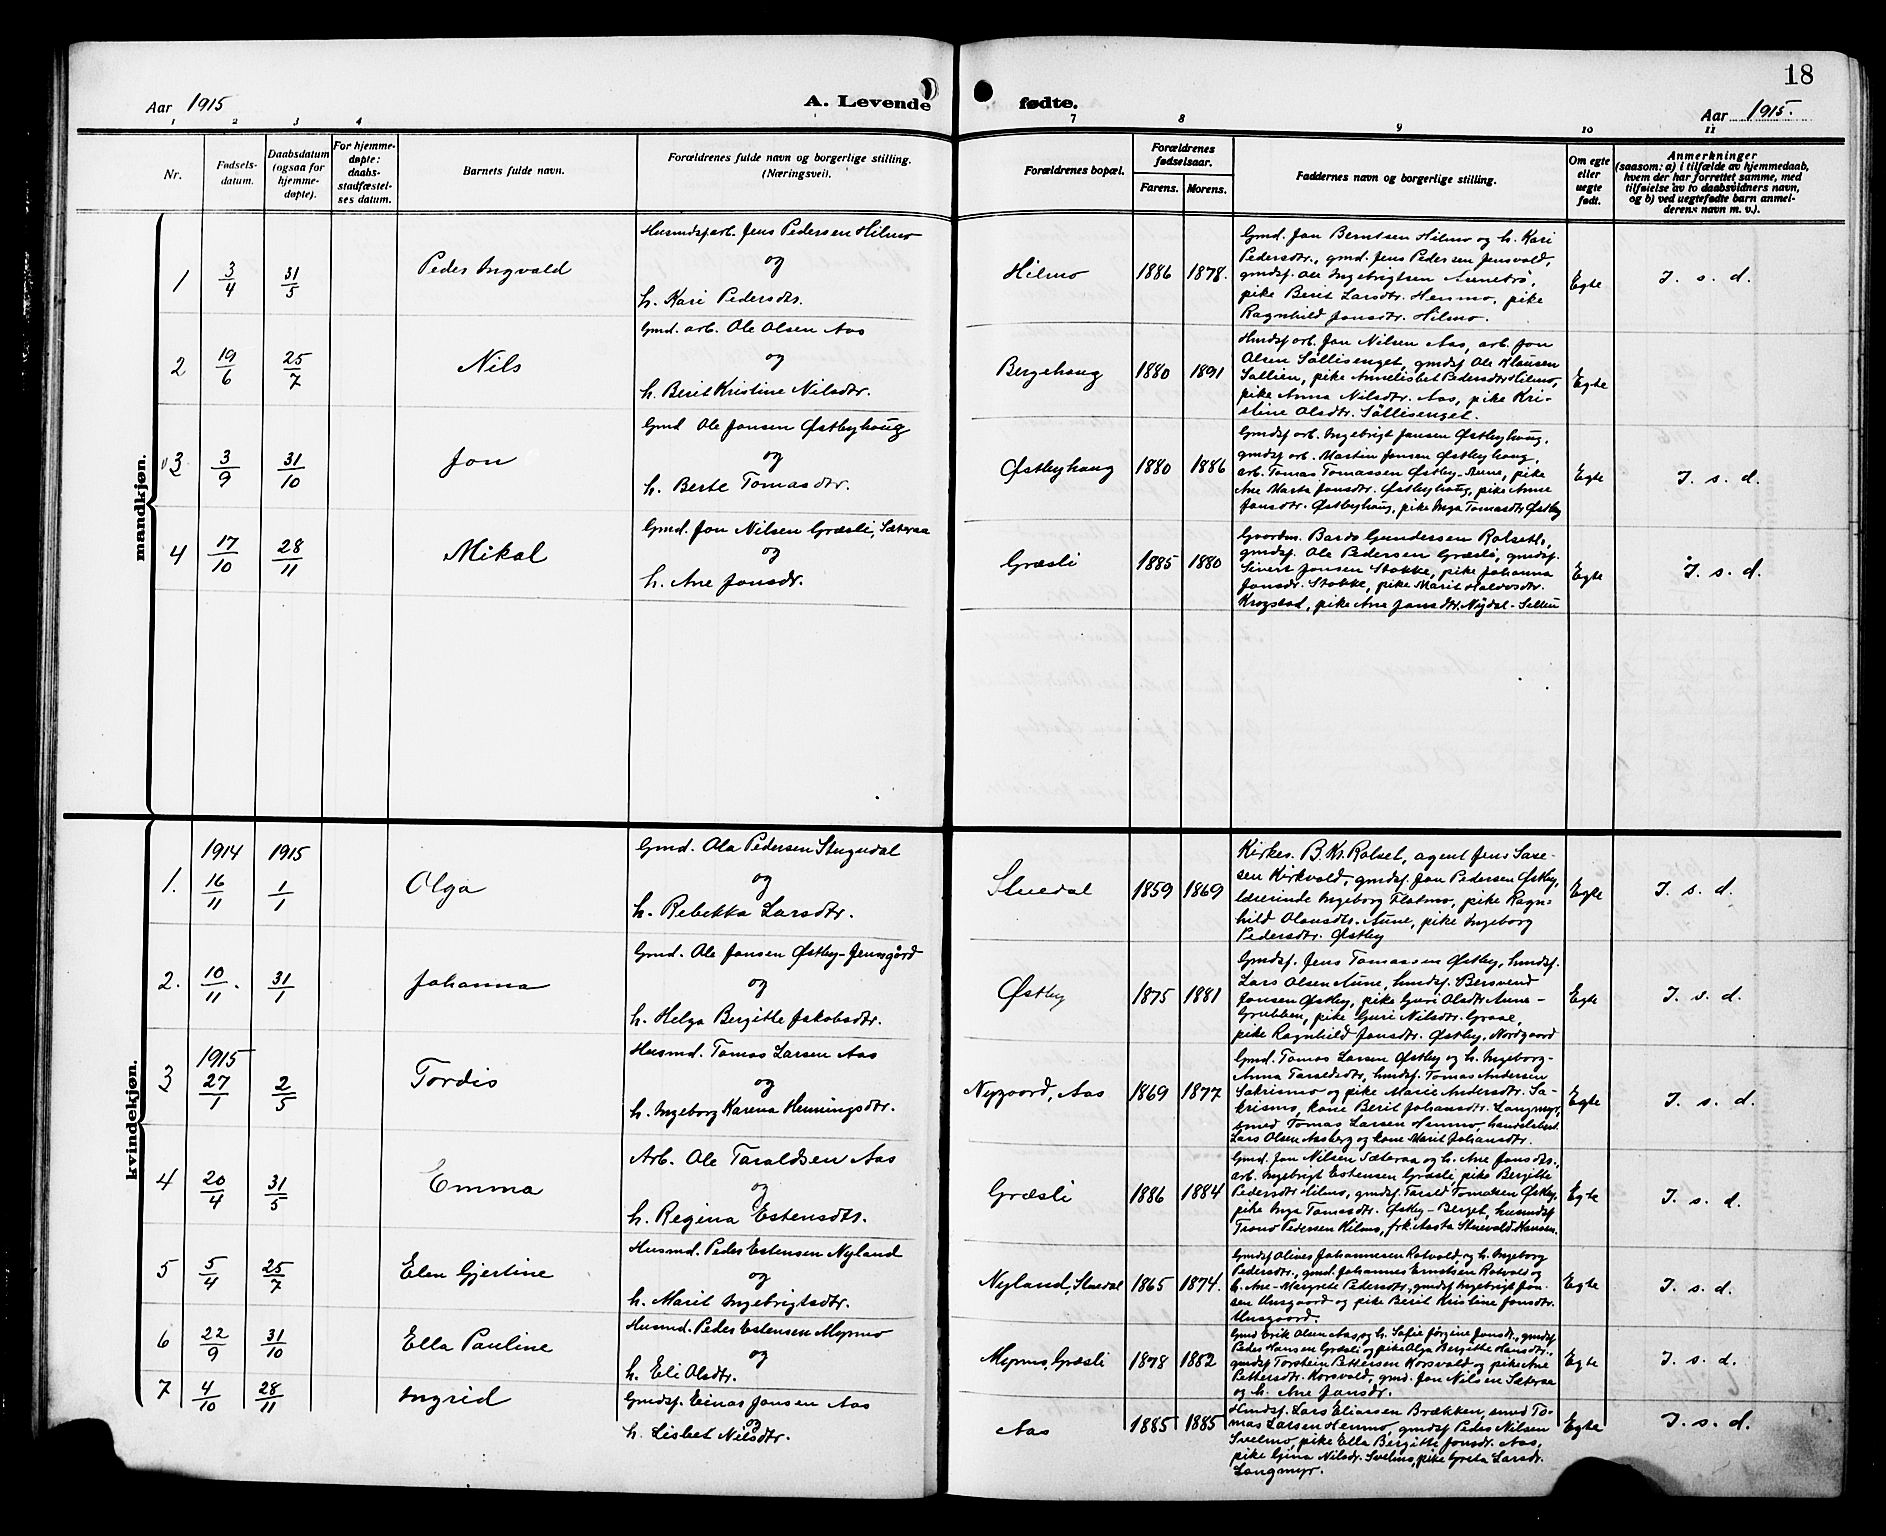 18
Aar 1915
A. Levende fødte.
Aar 1915.
1 2 3 4 7 8 9 10 11
Nr.
Fødsels-
datum.
Daabsdatum
(ogsaa for
hjemme-
døpte).
For hjemme-
døpte:
daabs-
stadfæstel-
ses datum.
Barnets fulde navn.
Forældrenes fulde navn og borgerlige stilling.
(Næringsvei).
Forældrenes bopæl.
Forældrenes
fødselsaar.
Farens. Morens.
Faddernes navn og borgerlige stilling.
Om egte
eller
uegte
født.
Anmerkninger
(saasom: a) i tilfælde av hjemmedaab,
hvem der har forrettet samme, med
tilføielse av to daabsvidners navn,
og b) ved uegtefødte barn anmel-
derens navn m. v.).
mandkjøn.
1
3/4
31/5
Peder Ingvald
Husmdsfarb. Jens Pedersen Hilmo
og
h. Kari Pedersdtr.
Hilmo
1886
1878.
Gmd. Jon Berntsen Hilmo og h. Kari
Pedersdtr., gmd. Jens Pedersen Jensvold,
gmdsf. Ole Ingebrigtsen
pike Berit Larsdtr. Henmo, pike
Ragnhild Jonsdtr. Hilmo.
Egte
I. s. d.
2
19/6
25/7
Nils
Gmd. arb. Ole Olsen Aas
og
h. Berit Kristine Nilsdtr.
Bergehaug
1880
1891
Hmdsf arb. Jon Nilsen Aas, arb. Jon
Olsen Sällisenget, gmdsf. Ole Klausen
Sällien, pike Annelisbet Pedersdtr Hilmo,
pike Anna Nilsdtr. Aas, pike Kri-
stine Olsdtr. Sällisenget.
Egte
3
3/9
31/10
Jon
Gmd Ole Jonsen Østbyhaug
og
h. Berte Tomasdtr.
Østbyhaug
1880
1886
Gmdsf arb. Ingebrigt Jonsen Østbyhaug,
gmdsf arb. Martin Jonsen Østbyhaug,
arb. Tomas Tomassen Østby-Aune, pike
Ane Marta Jonsdtr. Østbyhaug, pike Anne
Jonsdtr. Østbyhaug, pike Inga Tomasdtr Østby
Egte
I. s. d.
4
17/10
28/11
Mikal
Gmd. Jon Nilsen Græsli, Sæteraa
og
h. Ane Jonsdr.
Græsli
1885
1880
Gaardm. Bardo Gundersen Rolseth,
gmdsf. Ole Pedersen Græsli, gmdsf.
Sivert Jonsen Stokke, pike Johanna
Jonsdr. Stokke, pike Marit Halvosdtr.
Krogstad, pike Ane Jonsdtr. Nÿdal-Sellin
Egte
I. s. d.
kvindekjøn.
1914 1915
1.
16/11
1/1
Olga
Gmd. Ola Pedersen Stugudal
og
h. Rebekka Larsdtr.
Stuedal
1859
1869
Kirkes. B. Kr. Rolset, agent Jens Lasse-
sen Kirkvold, gmdsf. Jon Pedersen Østby,
lærerinde Ingeborg Flatmo, pike Ragn-
hild Olausdtr. Aune, pike Ingeborg
Pedersdtr. Østby
Egte
I. s. d.
2.
10/11.
31/1
Johanna
Gmd. Ole Jonsen Østby-Jensgård
og
h. Helga Bergitte Jakobsdtr.
Østby
1875
1881
Gmdsf. Jens Tomassen Østby, hmdsf.
Lars Olsen Aune, hmdsf. Bersvend
Jonsen Østby, pike Guri Olsdtr. Aune-
Grubben, pike Guri Nilsdtr. Graae,
pike Ragnhild Jonsdtr. Østby, Nordgaard
Egte
I. s. d.
1915
3
27/1
2/5
Tordis
Husmd. Tomas Larsen Aas
og
h. Ingeborg Karena Henningsdtr.
Nygaard, Aas
1869
1877
Gmd. Tomas Larsen Østby og h. Ingeborg-
Anna Taraldsdtr, hmdsf. Tomas Andersen
Sakrismo og pike Marie Andersdtr. Sa-
krismo, kone Berit Johansdtr. Langmyr,
smed Tomas Larsen Henmo, handelsbet.
Lars Olsen Aasberg og kone Marit Johansdtr.
Egte
I. s. d.
4
20/4
31/5
Emma
Arb. Ole Taraldsen Aas
og
h. Regina Estensdtr.
Græsli
1886
1884
Gmd. Jon Nilsen Sæteraa og h. Ane Jonsdtr.,
arb. Ingebrigt Estensen Græsli pike Bergitte
Pedersdtr Hilmo, gmdsf. Tarald Tomassen Østby,
pike Inga Tomasdtr. Østby-Berget, husmdsf
Trond Pedersen Hilmo, frk. Aasta Stuevold Hansen.
Egte
I. s. d.
5
5/4
25/7
Elen Gjertine
Husmd. Peder Estensen Nyland
og
h. Marit Ingebrigtsdtr.
Nyland, Stuedal
1865
1874.
Gmdsf Oliver Johannesen Rotvold, og h. Ingeborg
Pedersdtr., gmd. Johannes Erntsen Rotvold og
h. Ane-Margrete Pedersdtr, gmdsf Ingebrigt Jon-
sen Unsgaard og pike Berit Kristine Jonsdtr.
Unsgaard.
Egte
I. s. d.
6
22/9
31/10
Ella Pauline
Husmd. Peder Estensen Myrmo
og
h. Eli Olsdtr.
Myrmo, Græsli
1878
1882
Gmd Erik Olsen Aas, og h. Sofie Jørgine Jonsdr., gmdsf
Peder Hansen Græsli og pike Olga Bergitte Hansdtr.,
gmdsf Torstein Pettersen Korsvold og pike Ane
Pettersdtr. Korsvold, gmd. Jon Nilsen Sæteraa
og h. Ane Jonsdr.
Egte
I. s. d.
7
4/10
28/11
Ingrid
Gmdsf. Einar Jonsen Aas
og
h. Lisbet Nilsdtr.
Aas
1885
1885
Hmdsf. Lars Eliassen Brækken, smed To-
mas Larsen Henmo, gmdsf Peder Nilsen
Svelmo, pike Ella Bergitte Jonsdr. Aas,
pike Gina Nilsdr. Svelmo, pike Greta Larsdr.
Langmyr.
Egte
I. s. d.